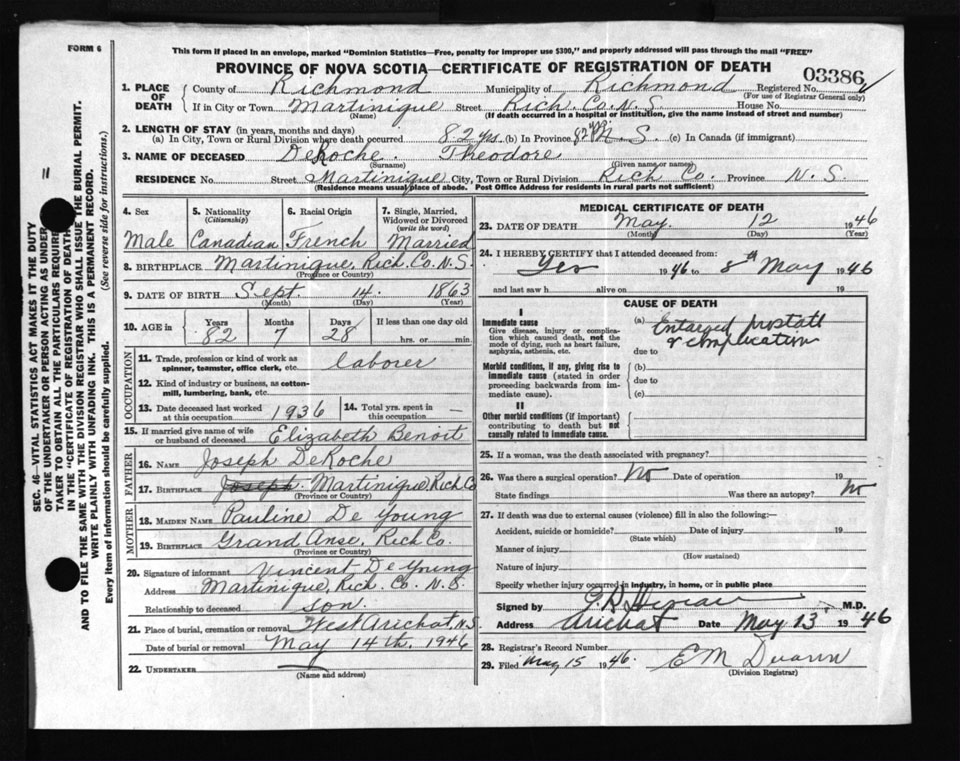 FORM 6
This form if placed in an envelope, marked "Dominion Statistics—Free, penalty for improper use $300," and properly addressed will pass through the mail "FREE"
PROVINCE OF NOVA SCOTIA—CERTIFICATE OF REGISTRATION OF DEATH
03386
1. PLACE OF DEATH County of Richmond Municipality of Richmond Registered No.
(For use of Registrar General only)
If in City or Town Martinique Street Rich. Co. N.S. House No.
(Name) (If death occurred in a hospital or institution, give the name instead of street and number)
2. LENGTH OF STAY (in years, months and days)
(a) In City, Town or Rural Division where death occurred 82 yrs. (b) In Province 82 yrs. N.S. (c) In Canada (if immigrant)
3. NAME OF DECEASED DeRoche. Theodore
(Surname) (Given name or names)
RESIDENCE No. Street Martinique City, Town or Rural Division Rich Co. Province N.S.
(Residence means usual place of abode. Post Office Address for residents in rural parts not sufficient)
4. Sex Male
5. Nationality (Citizenship) Canadian
6. Racial Origin French
7. Single, Married, Widowed or Divorced (write the word) Married
8. BIRTHPLACE Martinique, Rich. Co. N.S.
(Province or Country)
9. DATE OF BIRTH Sept. 14. 1863
(Month) (Day) (Year)
10. AGE in Years 82 Months 7 Days 28 If less than one day old hrs. or min.
OCCUPATION
11. Trade, profession or kind of work as spinner, teamster, office clerk, etc. laborer
12. Kind of industry or business, as cotton-mill, lumbering, bank, etc.
13. Date deceased last worked at this occupation 1936
14. Total yrs. spent in this occupation —
15. If married give name of wife or husband of deceased Elizabeth Benoit
FATHER
16. NAME Joseph DeRoche
17. BIRTHPLACE Joseph. Martinique, Rich Co
(Province or Country)
MOTHER
18. MAIDEN NAME Pauline De Young
19. BIRTHPLACE Grand Anse, Rich Co.
(Province or Country)
20. Signature of informant Vincent De Young
Address Martinique, Rich. Co. N.S.
Relationship to deceased son.
21. Place of burial, cremation or removal West Arichat, N.S.
Date of burial or removal May 14th, 1946
22. UNDERTAKER
(Name and address)
MEDICAL CERTIFICATE OF DEATH
23. DATE OF DEATH May. 12 1946
(Month) (Day) (Year)
24. I HEREBY CERTIFY that I attended deceased from:
Yes 1946 to 8th May 1946
and last saw h alive on 19
CAUSE OF DEATH
I
Immediate cause
Give disease, injury or complication which caused death, not the mode of dying, such as heart failure, asphyxia, asthenia, etc.
(a) Enlarged prostate
& complication
due to
Morbid conditions, if any, giving rise to immediate cause (stated in order proceeding backwards from immediate cause).
(b)
due to
(c)
II
Other morbid conditions (if important) contributing to death but not causally related to immediate cause.
25. If a woman, was the death associated with pregnancy?
26. Was there a surgical operation? No Date of operation 19
State findings Was there an autopsy? No
27. If death was due to external causes (violence) fill in also the following:—
Accident, suicide or homicide? Date of injury 19
(State which)
Manner of injury
(How sustained)
Nature of injury
Specify whether injury occurred in industry, in home, or in public place
Signed by M.D.
Address Arichat Date May 13 1946
28. Registrar's Record Number
29. Filed May 15 1946. E M
(Division Registrar)
SEC. 46—VITAL STATISTICS ACT MAKES IT THE DUTY
OF THE UNDERTAKER OR PERSON ACTING AS UNDERTAKER TO OBTAIN ALL THE PARTICULARS REQUIRED
IN THE "CERTIFICATE OF REGISTRATION OF DEATH"
AND TO FILE THE SAME WITH THE DIVISION REGISTRAR WHO SHALL ISSUE THE BURIAL PERMIT.
WRITE PLAINLY WITH UNFADING INK. THIS IS A PERMANENT RECORD.
Every item of information should be carefully supplied. (See reverse side for instructions.)
11